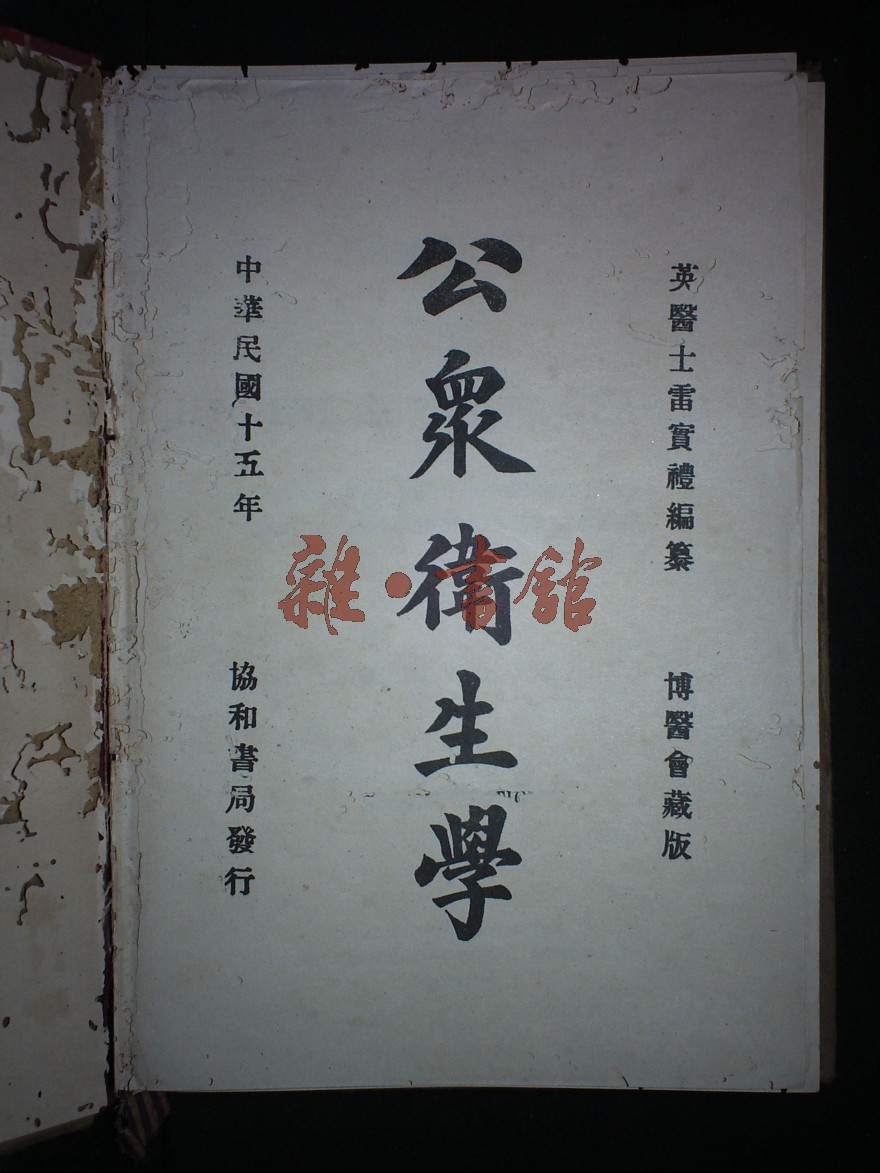 英醫士雷實禮編纂
博醫會藏版
公眾衛生學
中華民國十五年
協和書局發行
雜·書館